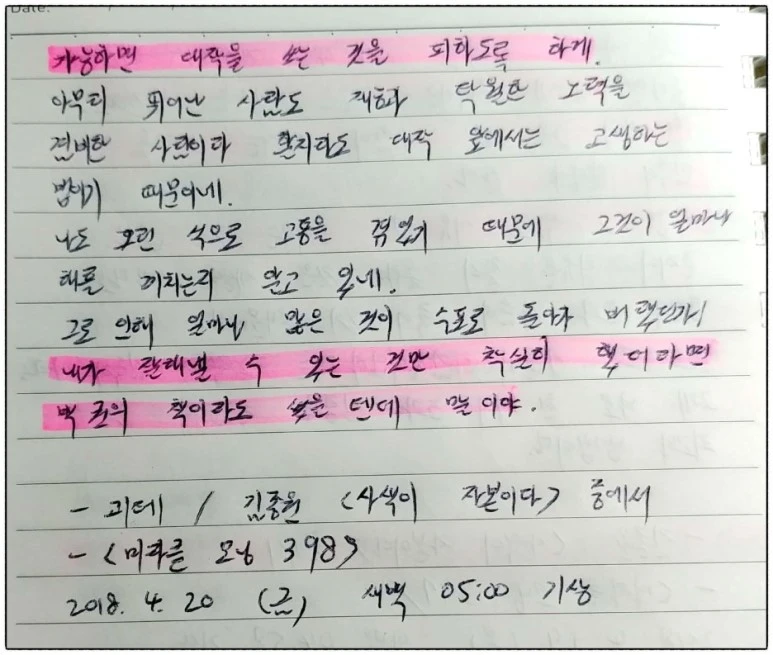 Date:
가능하면 대작을 쓰는 것을 피하도록 하게.
아무리 뛰어난 사람도 재능과 탁월한 노력을
겸비한 사람이라 할지라도 대작 앞에서는 고생하는
법이기 때문이네.
나도 그런 식으로 고통을 겪었기 때문에 그것이 얼마나
해를 끼치는지 알고 있네.
그로 인해 얼마나 많은 것이 수포로 돌아가 버렸던가!
내가 잘해낼 수 있는 것만 착실히 했더라면
백 권의 책이라도 썼을 텐데 말이야.
- 괴테 / 김종원 <사색이 자본이다> 중에서
- <미라클 모닝 398>
2018. 4. 20 (금) 새벽 05:00 기상